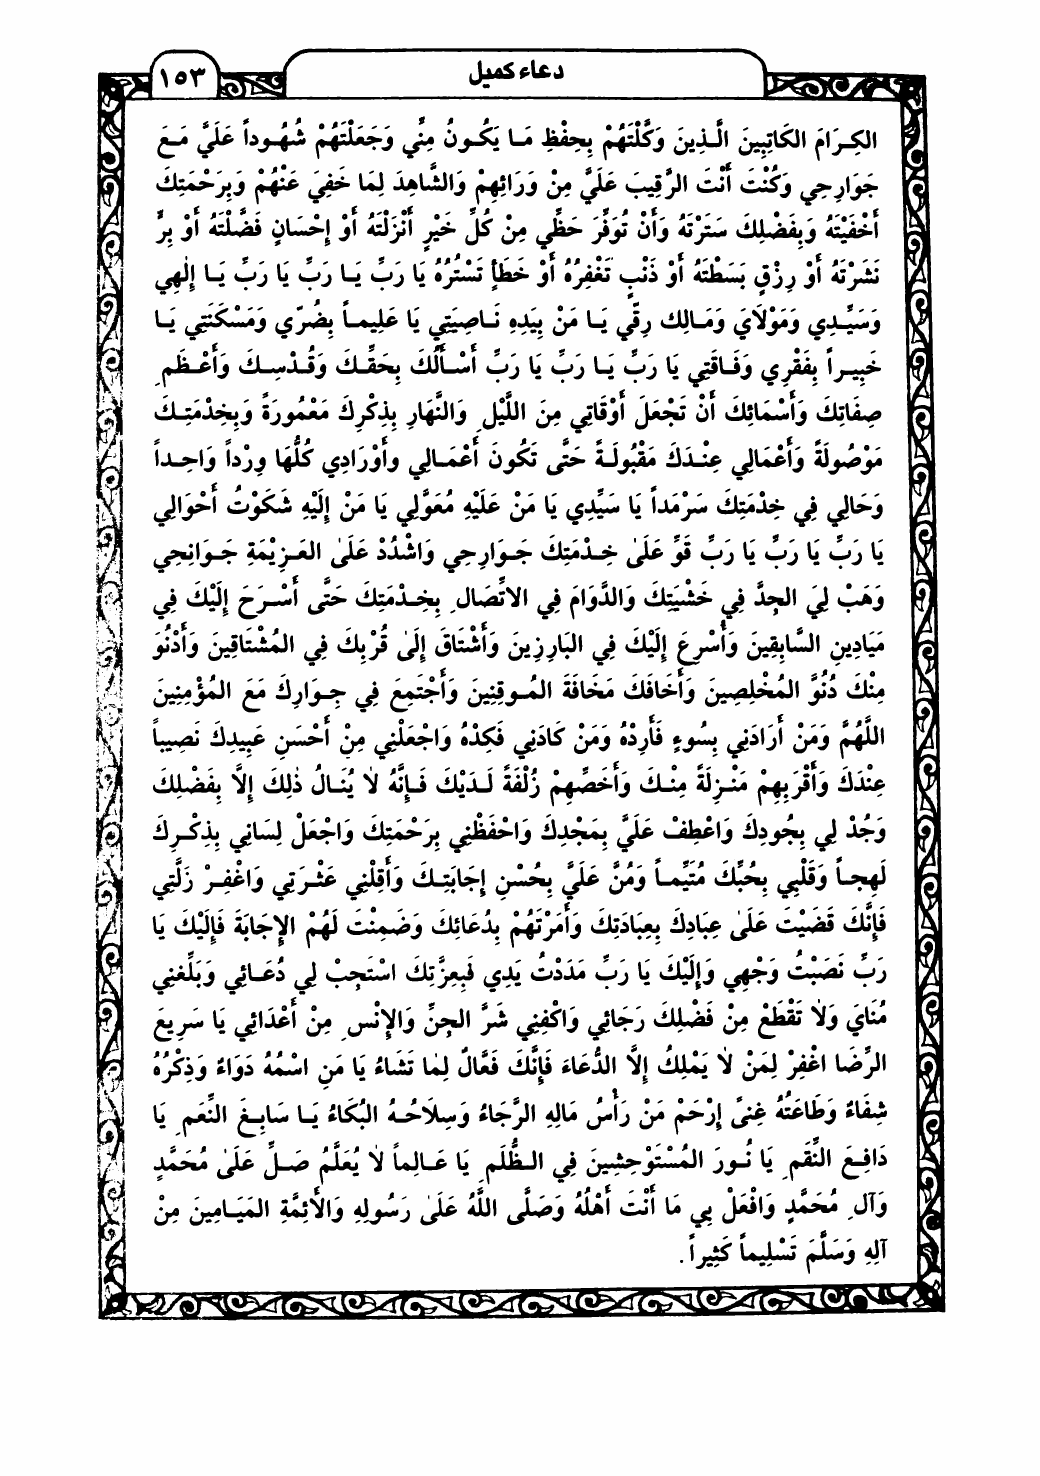 دعاء كميل
١٥٣
الكِرَامَ الكَاتِبِينَ الَّذِينَ وَكَّلْتَهُمْ بِحِفْظِ مَا يَكُونُ مِنِّي وَجَعَلْتَهُمْ شُهُوداً عَلَيَّ مَعَ
جَوَارِحِي وَكُنْتَ أَنْتَ الرَّقِيبَ عَلَيَّ مِنْ وَرَائِهِمْ وَالشَّاهِدَ لِمَا خَفِيَ عَنْهُمْ وَبِرَحْمَتِكَ
أَخْفَيْتَهُ وَبِفَضْلِكَ سَتَرْتَهُ وَأَنْ تُوَفِّرَ حَظِّي مِنْ كُلِّ خَيْرٍ أَنْزَلْتَهُ أَوْ إِحْسَانٍ فَضَّلْتَهُ أَوْ بِرٍّ
نَشَرْتَهُ أَوْ رِزْقٍ بَسَطْتَهُ أَوْ ذَنْبٍ تَغْفِرُهُ أَوْ خَطَأٍ تَسْتُرُهُ يَا رَبِّ يَا رَبِّ يَا رَبِّ يَا إِلٰهِي
وَسَيِّدِي وَمَوْلَايَ وَمَالِكَ رِقِّي يَا مَنْ بِيَدِهِ نَاصِيَتِي يَا عَلِيماً بِضُرِّي وَمَسْكَنَتِي يَا
خَبِيراً بِفَقْرِي وَفَاقَتِي يَا رَبِّ يَا رَبِّ يَا رَبِّ أَسْأَلُكَ بِحَقِّكَ وَقُدْسِكَ وَأَعْظَمِ
صِفَاتِكَ وَأَسْمَائِكَ أَنْ تَجْعَلَ أَوْقَاتِي مِنَ اللَّيْلِ وَالنَّهَارِ بِذِكْرِكَ مَعْمُورَةً وَبِخِدْمَتِكَ
مَوْصُولَةً وَأَعْمَالِي عِنْدَكَ مَقْبُولَةً حَتَّى تَكُونَ أَعْمَالِي وأَوْرَادِي كُلُّهَا وِرْداً وَاحِداً
وَحَالِي فِي خِدْمَتِكَ سَرْمَداً يَا سَيِّدِي يَا مَنْ عَلَيْهِ مُعَوَّلِي يَا مَنْ إِلَيْهِ شَكَوْتُ أَحْوَالِي
يَا رَبِّ يَا رَبِّ يَا رَبِّ قَوِّ عَلَىٰ خِدْمَتِكَ جَوارِحِي وَاشْدُدْ عَلَىٰ العَزِيْمَةِ جَوَانِحِي
وَهَبْ لِيَ الجِدَّ فِي خَشْيَتِكَ وَالدَّوَامَ فِي الاتِّصَالِ بِخِدْمَتِكَ حَتَّى أَسْرَحَ إِلَيْكَ فِي
مَيَادِينِ السَّابِقِينَ وَأُسْرِعَ إِلَيْكَ فِي البَارِزِينَ وَأَشْتَاقَ إِلَىٰ قُرْبِكَ فِي المُشْتَاقِينَ وَأَدْنُوَ
مِنْكَ دُنُوَّ المُخْلِصِينَ وَأَخَافَكَ مَخَافَةَ المُوقِنِينَ وَأَجْتَمِعَ فِي جِوَارِكَ مَعَ المُؤْمِنِينَ
اللَّهُمَّ وَمَنْ أَرَادَنِي بِسُوءٍ فَأَرِدْهُ وَمَنْ كَادَنِي فَكِدْهُ وَاجْعَلْنِي مِنْ أَحْسَنِ عَبِيدِكَ نَصِيباً
عِنْدَكَ وَأَقْرَبِهِمْ مَنْزِلَةً مِنْكَ وَأَخَصِّهِمْ زُلْفَةً لَدَيْكَ فَإِنَّهُ لاَ يُنَالُ ذٰلِكَ إِلاَّ بِفَضْلِكَ
وَجُدْ لِي بِجُودِكَ وَاعْطِفْ عَلَيَّ بِمَجْدِكَ وَاحْفَظْنِي بِرَحْمَتِكَ وَاجْعَلْ لِسَانِي بِذِكْرِكَ
لَهِجاً وَقَلْبِي بِحُبِّكَ مُتَيَّماً وَمُنَّ عَلَيَّ بِحُسْنِ إِجَابَتِكَ وَأَقِلْنِي عَثْرَتِي وَاغْفِرْ زَلَّتِي
فَإِنَّكَ قَضَيْتَ عَلَىٰ عِبَادِكَ بِعِبَادَتِكَ وَأَمَرْتَهُمْ بِدُعَائِكَ وَضَمِنْتَ لَهُمْ الإِجَابَةَ فَإِلَيْكَ يَا
رَبِّ نَصَبْتُ وَجْهِي وَإِلَيْكَ يَا رَبِّ مَدَدْتُ يَدِي فَبِعِزَّتِكَ اسْتَجِبْ لِي دُعَائِي وَبَلِّغْنِي
مُنَايَ وَلاَ تَقْطَعْ مِنْ فَضْلِكَ رَجَائِي وَاكْفِنِي شَرَّ الجِنِّ وَالإِنْسِ مِنْ أَعْدَائِي يَا سَرِيعَ
الرِّضَا اغْفِرْ لِمَنْ لاَ يَمْلِكُ إِلاَّ الدُّعَاءَ فَإِنَّكَ فَعَّالٌ لِمَا تَشَاءُ يَا مَنِ اسْمُهُ دَوَاءٌ وَذِكْرُهُ
شِفَاءٌ وَطَاعَتُهُ غِنىً إِرْحَمْ مَنْ رَأْسُ مَالِهِ الرَّجَاءُ وَسِلَاحُهُ البُكَاءُ يَا سَابِغَ النِّعَمِ يَا
دَافِعَ النِّقَمِ يَا نُورَ المُسْتَوْحِشِينَ فِي الظُّلَمِ يَا عَالِماً لاَ يُعَلَّمُ صَلِّ عَلَىٰ مُحَمَّدٍ
وَآلِ مُحَمَّدٍ وَافْعَلْ بِي مَا أَنْتَ أَهْلُهُ وَصَلَّى اللَّهُ عَلَىٰ رَسُولِهِ وَالأَئِمَّةِ المَيَامِينَ مِنْ
آلِهِ وَسَلَّمَ تَسْلِيماً كَثِيراً.